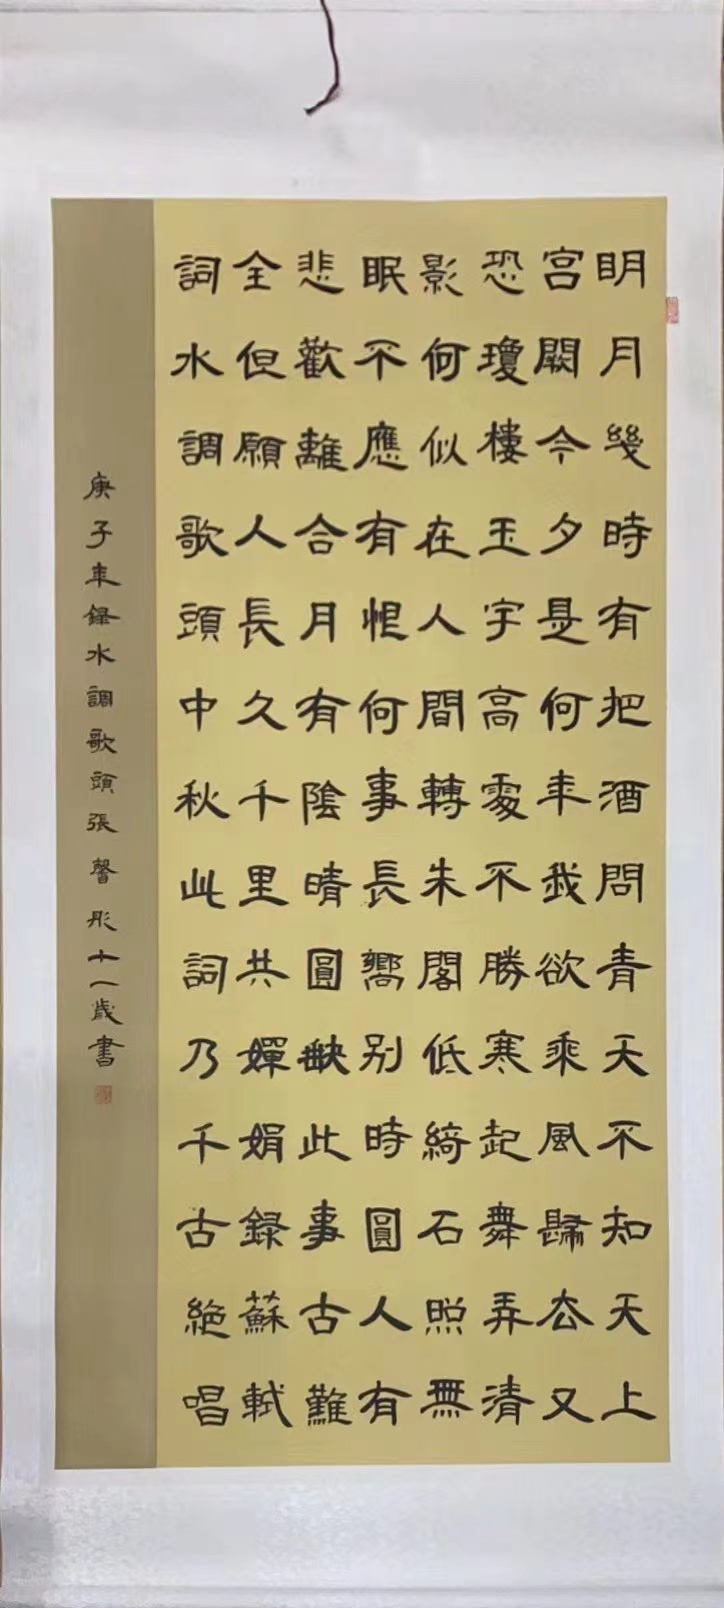 明月幾時有把酒問青天不知天上
宮闕今夕是何年我欲乘風歸去又
恐瓊樓玉宇高處不勝寒起舞弄清
影何似在人間轉朱閣低綺石照無
眠不應有恨何事長嚮別時圓人有
悲歡離合月有陰晴圓缺此事古難
全但願人長久千里共嬋娟録蘇軾
詞水調歌頭中秋此詞乃千古絕唱
庚子年録水調歌頭張馨彤十一歲書